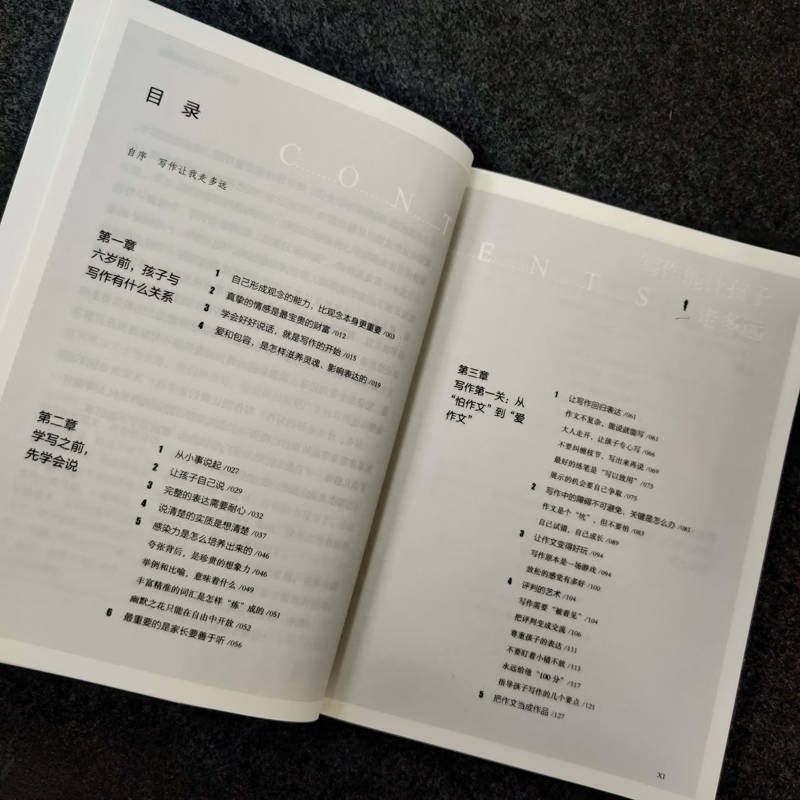 目 录
CONTENTS
自序 写作让我走多远
第一章
六岁前,孩子与
写作有什么关系
1 自己形成观念的能力,比观念本身更重要 /003
2 真挚的情感是最宝贵的财富 /012
3 学会好好说话,就是写作的开始 /015
4 爱和包容,是怎样滋养灵魂、影响表达的 /019
第二章
学写之前,
先学会说
1 从小事说起 /027
2 让孩子自己说 /029
3 完整的表达需要耐心 /032
4 说清楚的实质是想清楚 /037
5 感染力是怎么培养出来的 /046
夸张背后,是珍贵的想象力 /046
举例和比喻,意味着什么 /049
丰富精准的词汇是怎样“炼”成的 /051
幽默之花只能在自由中开放 /052
6 最重要的是家长要善于听 /056
第三章
写作第一关:从
“怕作文”到“爱
作文”
1 让写作回归表达 /061
作文不复杂,能说就能写 /061
大人走开,让孩子专心写 /066
不要纠缠枝节,写出来再说 /069
最好的练笔是“写以致用” /073
展示的机会要自己争取 /075
2 写作中的障碍不可避免,关键是怎么办 /083
作文是个“坑”,但不要怕 /083
自己试错,自己成长 /089
3 让作文变得好玩 /094
写作原本是一场游戏 /094
放松的感觉有多好 /100
4 评判的艺术 /104
写作需要“被看见” /104
把评判变成交流 /106
尊重孩子的表达 /111
不要盯着小错不放 /113
永远给他“100分” /117
指导孩子写作的几个要点 /121
5 把作文当成作品 /127
XI